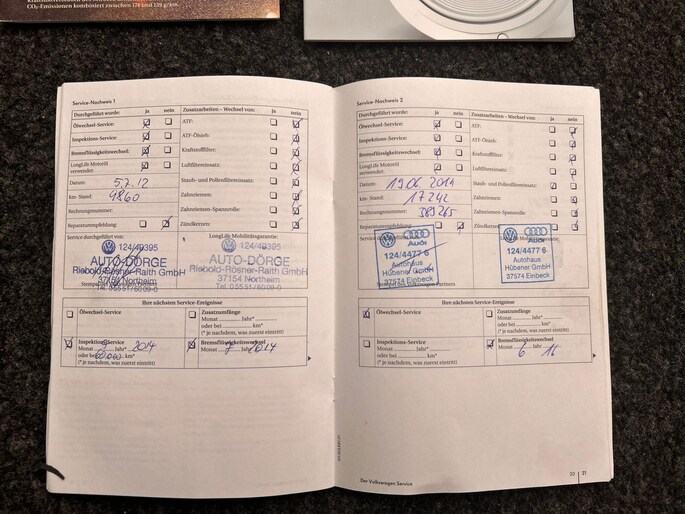 CO₂-Emissionen kombiniert zwischen 174 und 139 g/km.
Service-Nachweis 1
Durchgeführt wurde: Ja nein Zusatzarbeiten – Wechsel von: Ja nein
Ölwechsel-Service: ATF:
Inspektions-Service: ATF-Ölsieb:
Bremsflüssigkeitswechsel: Kraftstofffilter:
LongLife Motoröl verwendet: Luftfiltereinsatz:
Datum: 5.7.12 Staub- und Pollenfiltereinsatz:
km-Stand: 9860 Zahnriemen:
Rechnungsnummer: Zahnriemen-Spannrolle:
Reparaturempfehlung: Zündkerzen:
Service durchgeführt von: LongLife Mobilitätsgarantie:
124/49395 124/49395
AUTO-DÖRGE AUTO-DÖRGE
Riebold-Rösner-Raith GmbH Riebold-Rösner-Raith GmbH
37154 Northeim 37154 Northeim
Tel. 05551/6009-0 Tel. 05551/6009-0
Ihre nächsten Service-Ereignisse
Ölwechsel-Service Zusatzumfänge
Monat Jahr*
oder bei km*
(* je nachdem, was zuerst eintritt)
Inspektions-Service Bremsflüssigkeitswechsel
Monat Jahr* 2014 Monat 7 Jahr 2014
oder bei km*
(* je nachdem, was zuerst eintritt)
Service-Nachweis 2
Durchgeführt wurde: Ja nein Zusatzarbeiten – Wechsel von: Ja nein
Ölwechsel-Service: ATF:
Inspektions-Service: ATF-Ölsieb:
Bremsflüssigkeitswechsel: Kraftstofffilter:
LongLife Motoröl verwendet: Luftfiltereinsatz:
Datum: 19.06.2014 Staub- und Pollenfiltereinsatz:
km-Stand: 17242 Zahnriemen:
Rechnungsnummer: 389265 Zahnriemen-Spannrolle:
Reparaturempfehlung: Zündkerzen:
Audi Audi
124/4477 6 124/4477 6
Autohaus Autohaus
Hübener GmbH Hübener GmbH
37574 Einbeck 37574 Einbeck
Ihre nächsten Service-Ereignisse
Ölwechsel-Service Zusatzumfänge
Monat Jahr*
oder bei km*
(* je nachdem, was zuerst eintritt)
Inspektions-Service Bremsflüssigkeitswechsel
Monat Jahr* Monat Jahr
oder bei km* 6 16
(* je nachdem, was zuerst eintritt)
Der Volkswagen Service
20 21